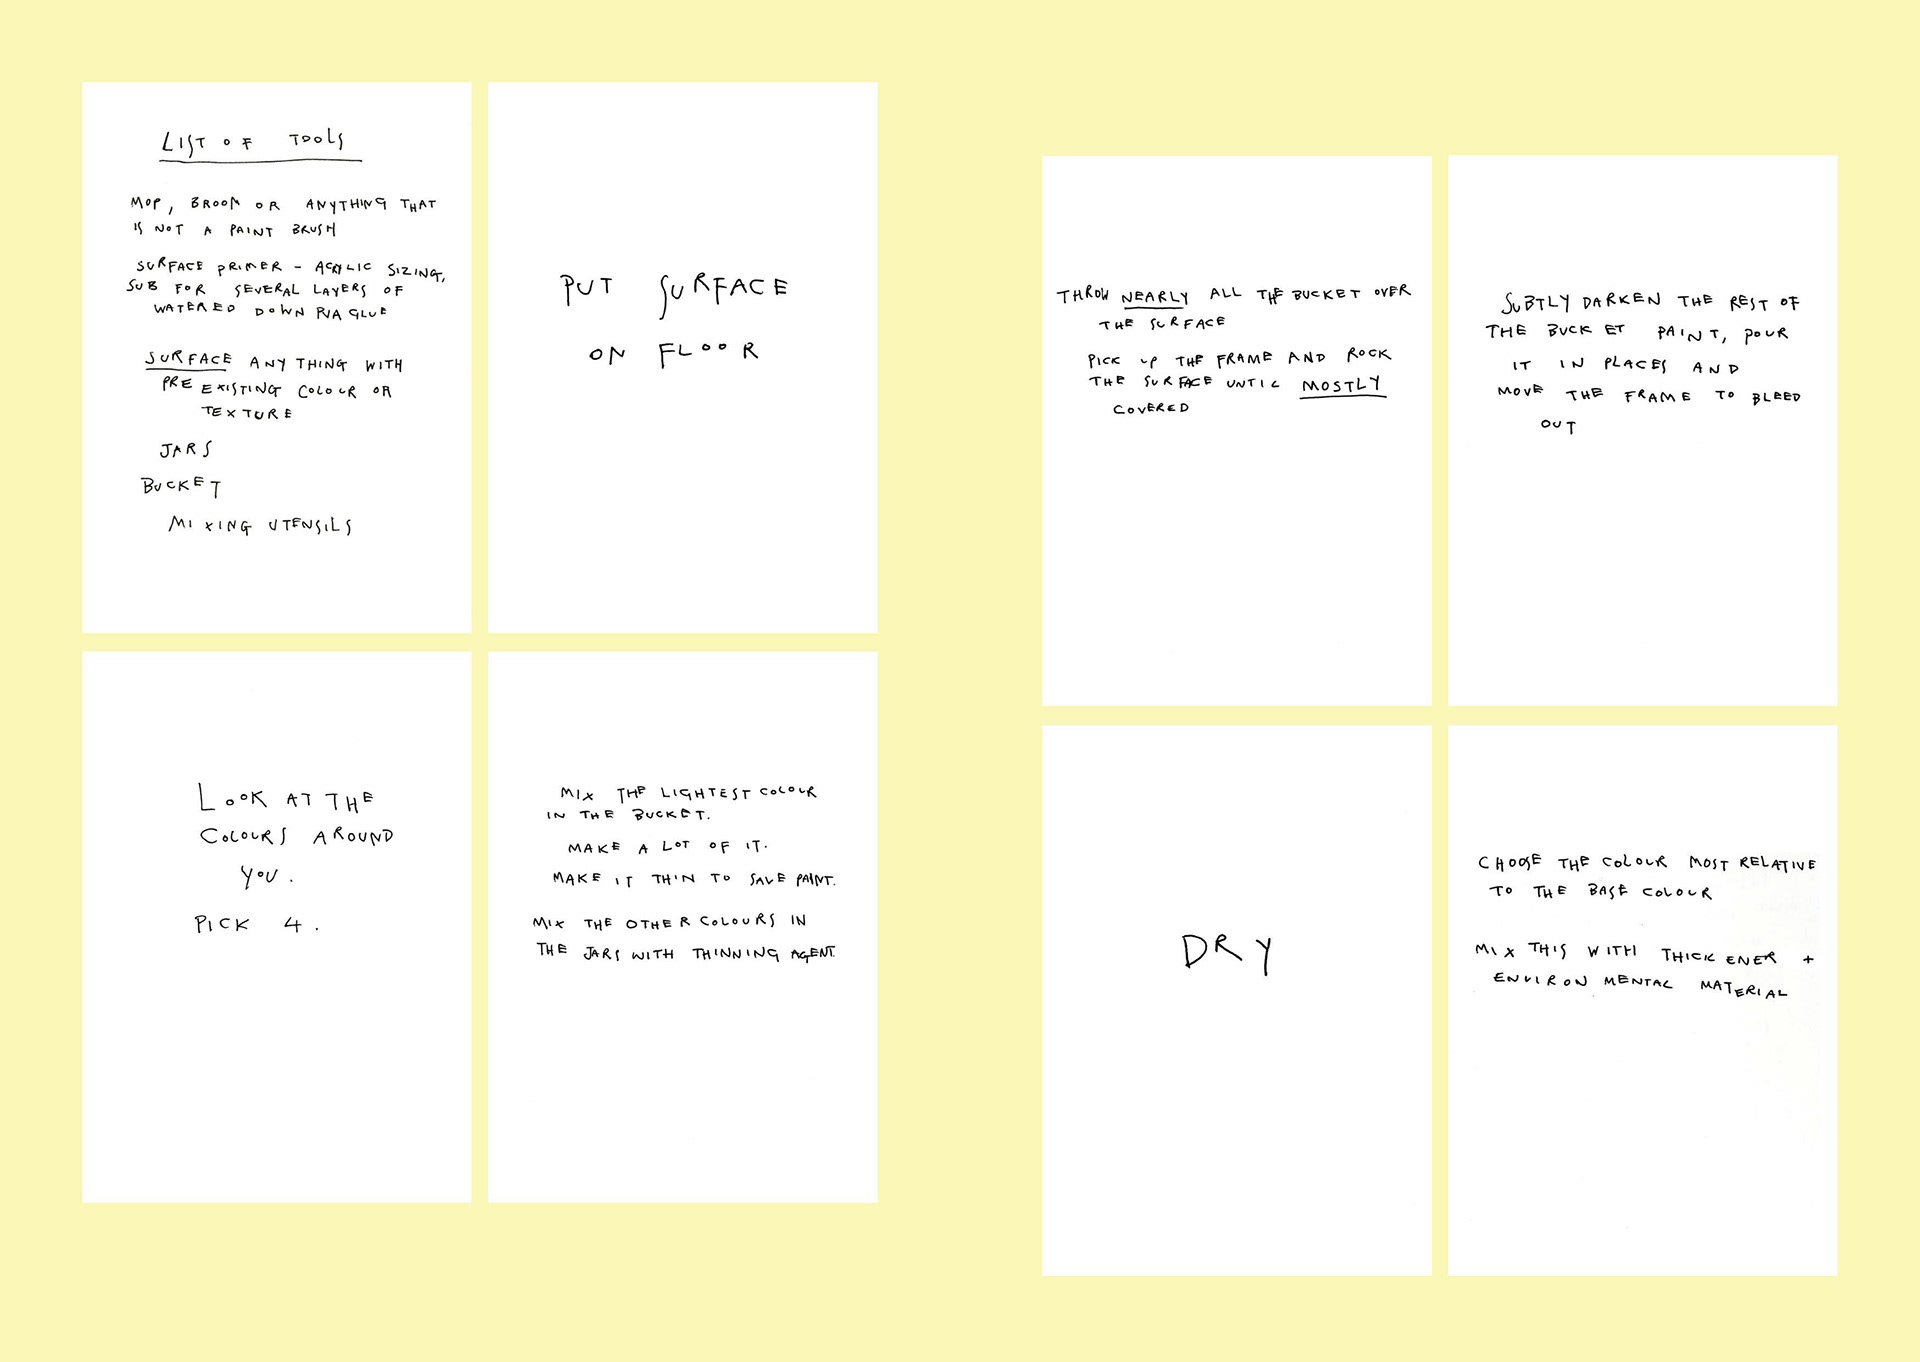 LIST OF TOOLS
MOP, BROOM OR ANYTHING THAT
IS NOT A PAINT BRUSH
SURFACE PRIMER - ACRYLIC SIZING,
SUB FOR SEVERAL LAYERS OF
WATERED DOWN PVA GLUE
SURFACE ANYTHING WITH
PRE EXISTING COLOUR OR
TEXTURE
JARS
BUCKET
MIXING UTENSILS
PUT SURFACE
ON FLOOR
LOOK AT THE
COLOURS AROUND
YOU.
PICK 4.
MIX THE LIGHTEST COLOUR
IN THE BUCKET.
MAKE A LOT OF IT.
MAKE IT THIN TO SAVE PAINT.
MIX THE OTHER COLOURS IN
THE JARS WITH THINNING AGENT.
THROW NEARLY ALL THE BUCKET OVER
THE SURFACE
PICK UP THE FRAME AND ROCK
THE SURFACE UNTIL MOSTLY
COVERED
SUBTLY DARKEN THE REST OF
THE BUCKET PAINT, POUR
IT IN PLACES AND
MOVE THE FRAME TO BLEED
OUT
DRY
CHOOSE THE COLOUR MOST RELATIVE
TO THE BASE COLOUR
MIX THIS WITH THICKENER +
ENVIRONMENTAL MATERIAL